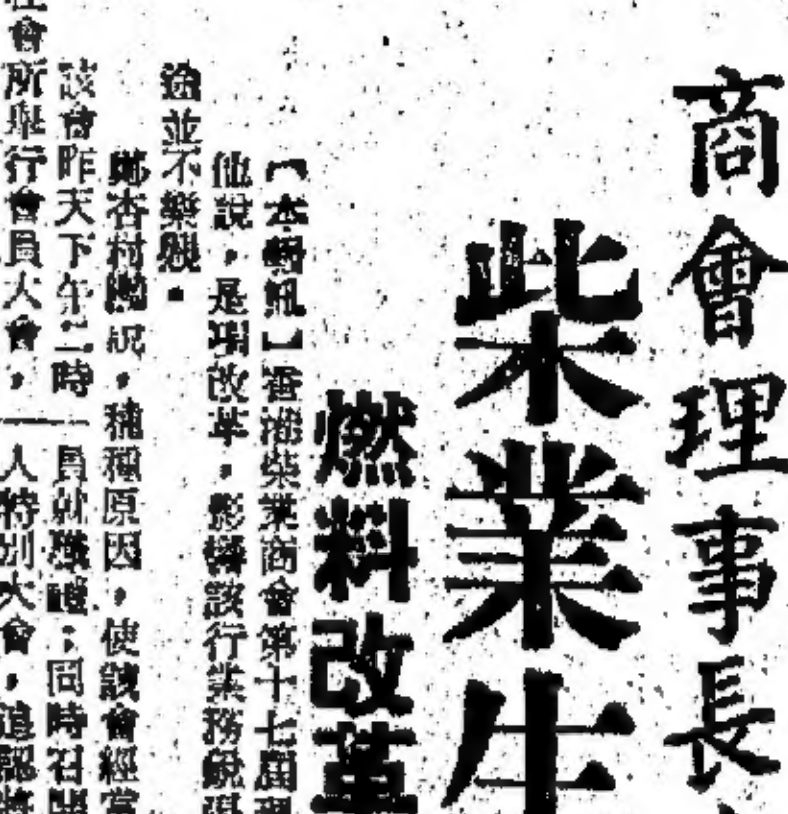 商會理事長
柴業生
燃料改革
【本報訊】香港柴業商會第十七屆理
他說，是項改革，影響該行業務銳
途並不樂觀。
鄭杏村說，種種原因，使該會經
該會昨天下午二時
員就職禮；同時召開
會所舉行會員大會，
人特別大會，追認